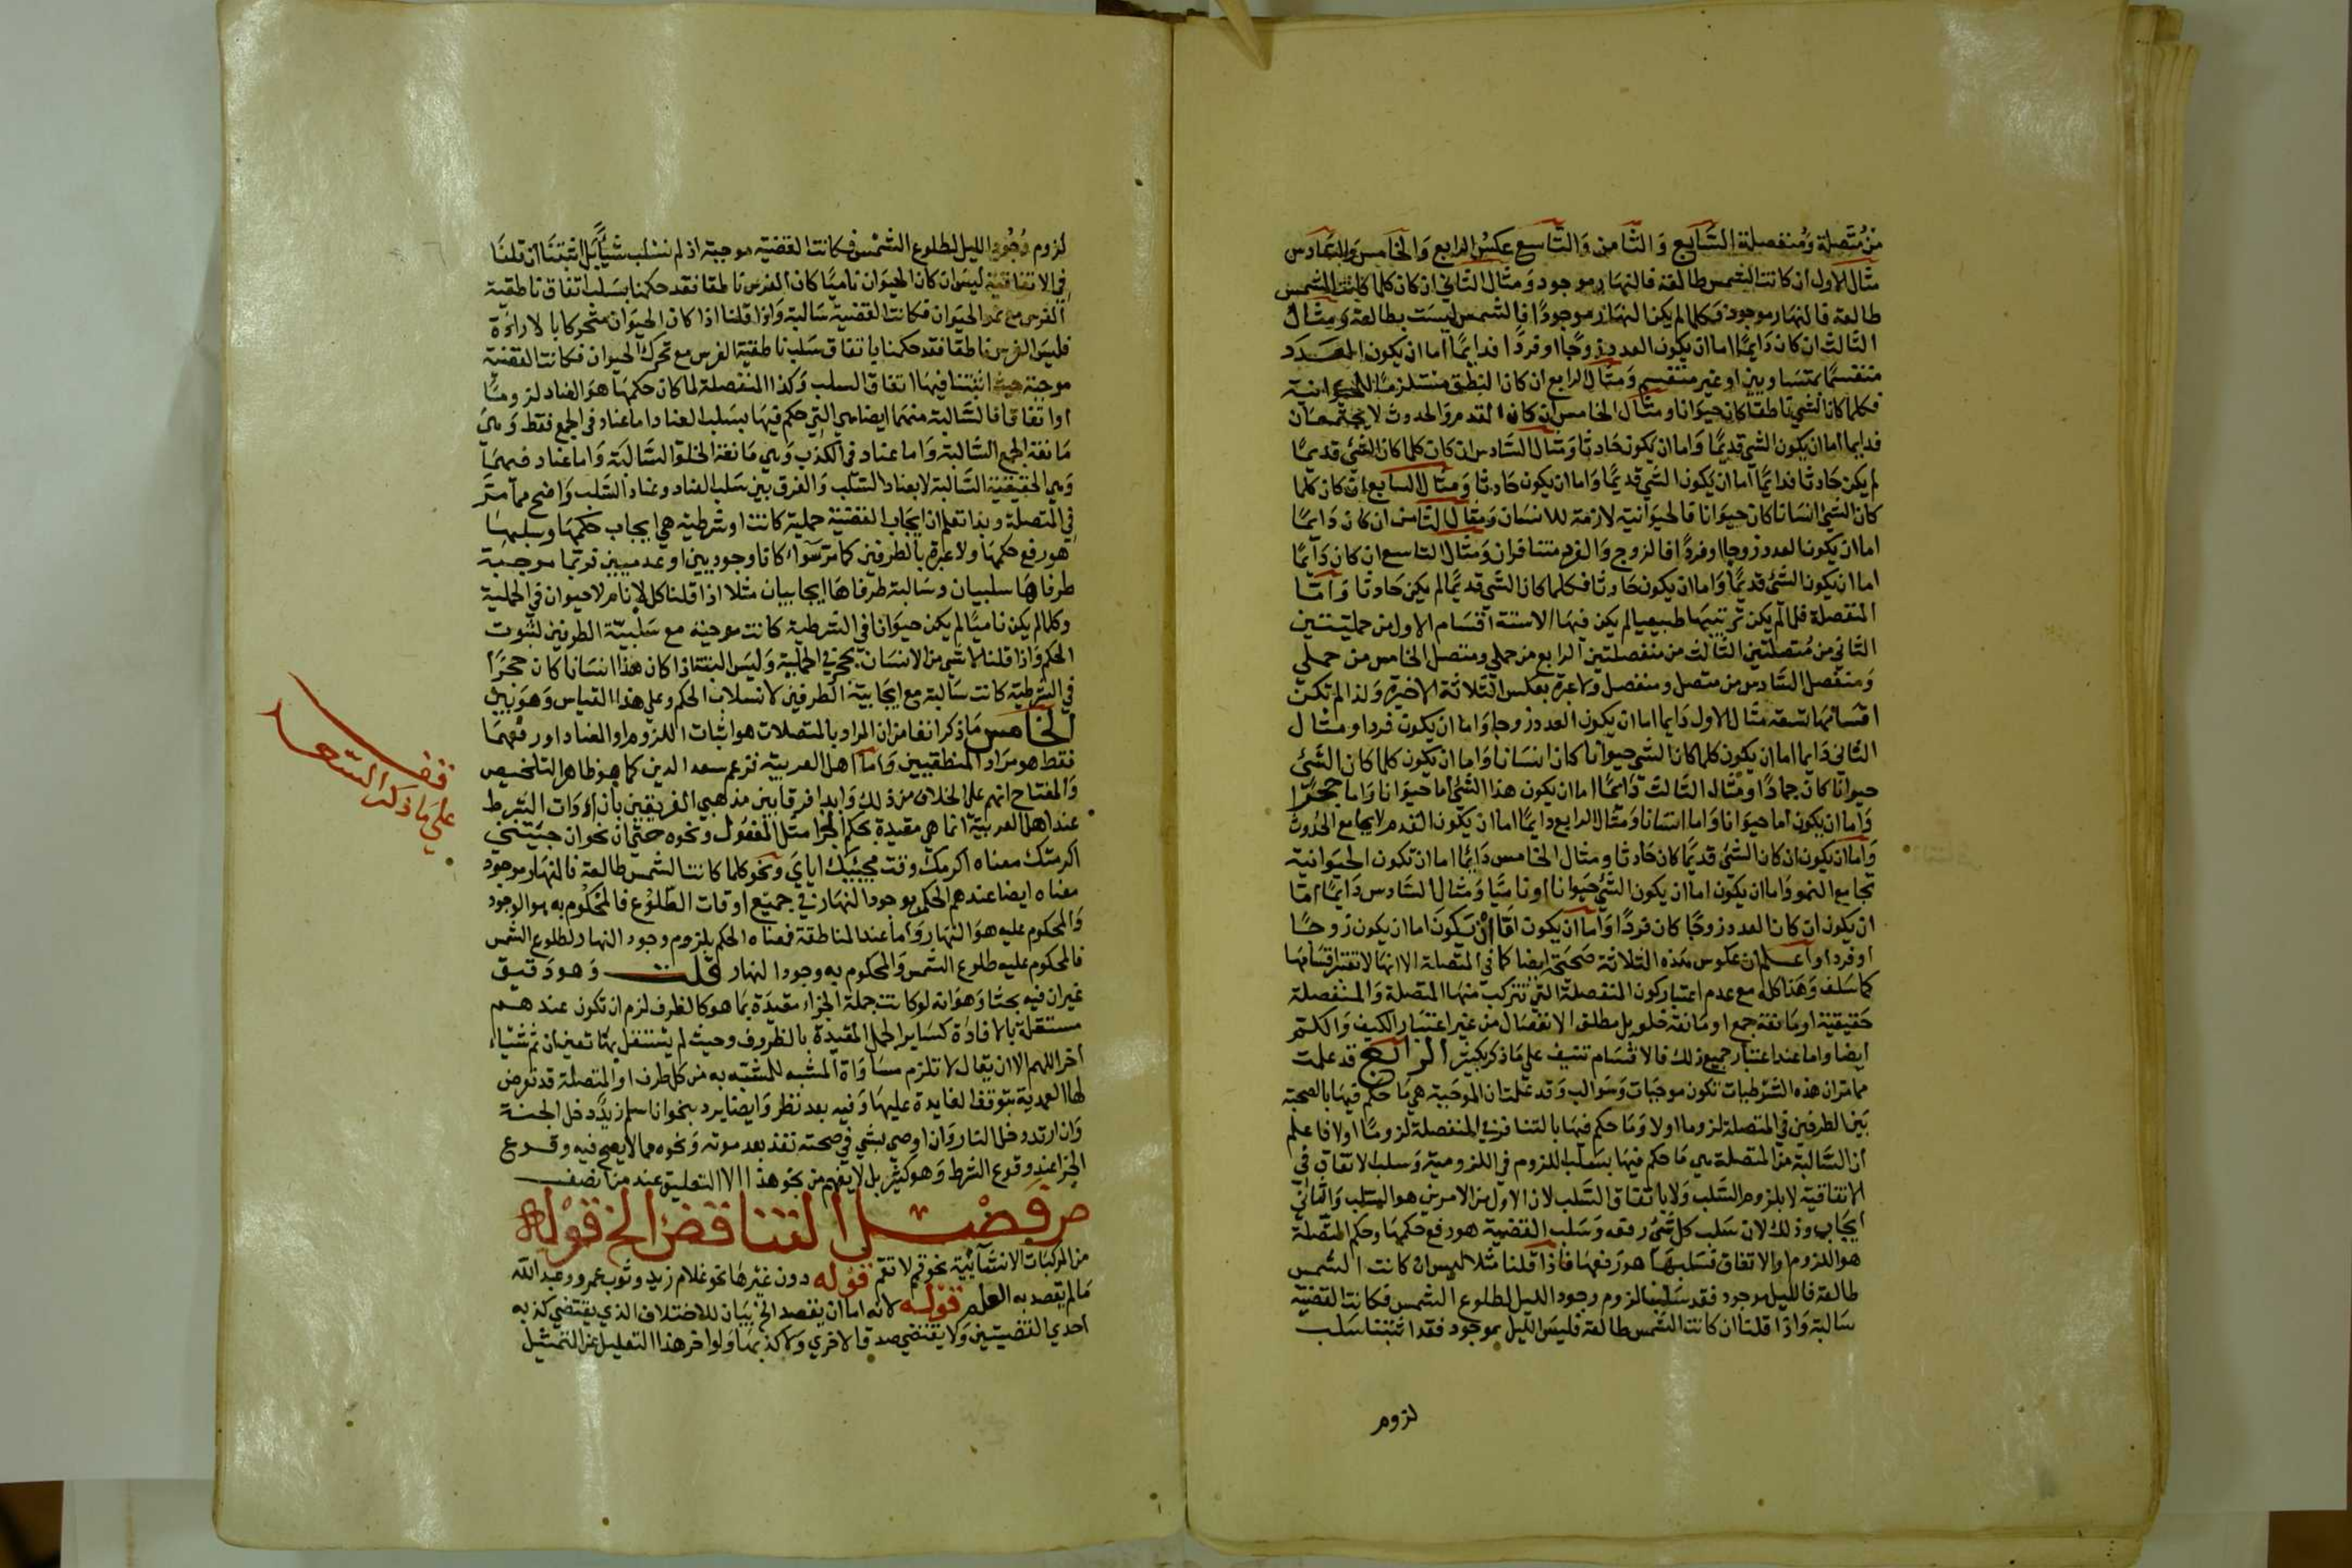 من متصلة ومنفصلة السابع والثامن والتاسع عكس الرابع والخامس والسادس
مثال الاول ان كانت الشمس طالعة فالنهار موجود ومثال الثاني ان كان كلما كانت الشمس
طالعة فالنهار موجود فكلما لم يكن النهار موجودا فالشمس ليست بطالعة ومثال
الثالث ان كان دايما اما ان يكون العدد زوجا او فردا فدايما اما ان يكون العدد
منقسما بمتساويين او غير منقسم ومثال الرابع ان كان النطق مستلزما للحيوانية
فكلما كان الشي ناطقا كان حيوانا ومثال الخامس ان كان القدم والحدوث لا يجتمعان
فدايما اما ان يكون الشي قديما واما ان يكون حادثا ومثال السادس ان كان كلما كان الشي قديما
لم يكن حادثا فدايما اما ان يكون الشي قديما واما ان يكون حادثا ومثال السابع ان كان كلما
كان الشي انسانا كان حيوانا فالحيوانية لازمة للانسان ومثال الثامن ان كان دايما
اما ان يكون العدد زوجا او فردا فالزوج والفرد متنافران ومثال التاسع ان كان دايما
اما ان يكون الشي قديما واما ان يكون حادثا فكلما كان الشي قديما لم يكن حادثا واما
المنفصلة فلما لم يكن ترتيبها طبيعيا لم يكن فيها الا ستة اقسام الاول من حمليتين
الثاني من متصلتين الثالث من منفصلتين الرابع من حملي ومتصل الخامس من حملي
ومنفصل السادس من متصل ومنفصل ولا عبرة بعكس الثلاثة الاخيرة ولذا لم تكن
اقسامها تسعة مثال الاول دايما اما ان يكون العدد زوجا واما ان يكون فردا ومثال
الثاني دايما اما ان يكون كلما كان الشي حيوانا كان انسانا واما ان يكون كلما كان الشي
حيوانا كان جمادا ومثال الثالث دايما اما ان يكون هذا الشي اما حيوانا واما حجرا
واما ان يكون اما حيوانا واما انسانا ومثال الرابع دايما اما ان يكون القدم لا يجامع الحدوث
واما ان يكون ان كان الشي قديما كان حادثا ومثال الخامس دايما اما ان تكون الحيوانية
تجامع النمو واما ان يكون اما ان يكون الشي حيوانا او ناميا ومثال السادس دايما اما
ان يكون ان كان العدد زوجا كان فردا واما ان يكون اما ان يكون اما ان يكون زوجا
او فردا واعلم ان عكوس هذه الثلاثة صحيحة ايضا كما في المتصلة الا انها لا تغير اقسامها
كما سلف وهذا كله مع عدم اعتبار كون المنفصلة التي تتركب منها المتصلة والمنفصلة
حقيقية او مانعة جمع او مانعة خلو بل مطلق الانفصال من غير اعتبار الكيف والكم
ايضا واما عند اعتبار جميع ذلك فالاقسام تنيف على ما ذكر بكثير الرابع قد علمت
مما مر ان هذه الشرطيات تكون موجبات وسوالب وقد علمت ان الموجبة هي ما حكم فيها بالصحبة
بين الطرفين في المتصلة لزوما اولا وما حكم فيها بالتنافر في المنفصلة لزوما اولا فاعلم
ان السالبة من المتصلة هي ما حكم فيها بسلب اللزوم في اللزومية وسلب الاتفاق في
الاتفاقية لا بلزوم السلب ولا باتفاق السلب لان الاول من الامرين هو السلب والثاني
ايجاب وذلك لان سلب كل شي رفعه وسلب القضية هو رفع حكمها وحكم المتصلة
هو اللزوم والاتفاق فسلبها هو رفعها فاذا قلنا مثلا ليس ان كانت الشمس
طالعة فالليل موجود فقد سلبنا لزوم وجود الليل لطلوع الشمس فكانت القضية
سالبة واذا قلنا ان كانت الشمس طالعة فليس الليل بموجود فقد اثبتنا سلب
لزوم
لزوم وجود الليل لطلوع الشمس فكانت القضية موجبة اذ لم نسلب شيا بل اثبتنا ان قلنا
في الاتفاقية ليس ان كان الحيوان ناميا كان الفرس ناطقا فقد حكمنا بسلب اتفاق ناطقية
الفرس مع نمو الحيوان فكانت القضية سالبة واذا قلنا اذا كان الحيوان متحركا بالارادة
فليس الفرس ناطقا فقد حكمنا باتفاق سلب ناطقية الفرس مع تحرك الحيوان فكانت القضية
موجبة حيث اثبتنا فيها اتفاق السلب وكذا المنفصلة لما كان حكمها هو العناد لزوما
او اتفاقا فالسالبة منهما ايضا هي التي حكم فيها بسلب العناد اما عناد في الجمع فقط وهي
مانعة الجمع السالبة واما عناد في الكذب وهي مانعة الخلو السالبة واما عناد فيهما
وهي الحقيقية السالبة لا بعناد السلب والفرق بين سلب العناد وعناد السلب واضح مما مر
في المتصلة وبذا تعلم ان ايجاب القضية حملية كانت او شرطية هي ايجاب حكمها وسلبها
هو رفع حكمها ولا عبرة بالطرفين كما مر سواء كانا وجوديين او عدميين فربما موجبة
طرفاها سلبيان وسالبة طرفاها ايجابيان مثلا اذا قلنا كل لا نام لا حيوان في الحملية
وكلما لم يكن ناميا لم يكن حيوانا في الشرطية كانت موجبة مع سلبية الطرفين لثبوت
الحكم واذا قلنا لا شي من الانسان بحجر في الحملية وليس البتة اذا كان هذا انسانا كان حجرا
في الشرطية كانت سالبة مع ايجابية الطرفين لانسلاب الحكم وعلى هذا القياس وهو بين
الخامس ما ذكر انفا من ان المراد بالمتصلات هو اثبات اللزوم او العناد او رفعهما
فقط هو مراد المنطقيين واما اهل العربية فزعم سعد الدين كما هو ظاهر التلخيص
والمفتاح انهم على الخلاف من ذلك وابدا فرقا بين مذهبي الفريقين بان ادوات الشرط
عند اهل العربية انما هي مقيدة بحكم الجزا مثل المفعول ونحوه حتى ان نحو ان جيتني
اكرمتك معناه اكرمك وقت مجيئك اياي ونحو كلما كانت الشمس طالعة فالنهار موجود
معناه ايضا عندهم الحكم بوجود النهار في جميع اوقات الطلوع فالمحكوم به هو الوجود
والمحكوم عليه هو النهار واما عند المناطقة فمعناه الحكم بلزوم وجود النهار لطلوع الشمس
فالمحكوم عليه طلوع الشمس والمحكوم به وجود النهار قلت وهو دقيق
غير ان فيه بحثا وهو انه لو كانت جملة الجزاء مقيدة بما هو كالظرف لزم ان تكون عندهم
مستقلة بالافادة كساير الجمل المقيدة بالظروف وحيث لم يستقل بها تعين ان ثم شياء
اخر اللهم الا ان يقال لا تلزم مساواة المشبه للمشبه به من كل طرف او المتصلة قد تعرض
لها العمدية بتوقف الفايدة عليها وفيه بعد نظر وايضا يرد بنحو ان اسلم زيد دخل الجنة
وان ارتد دخل النار وان اوصى بشي في صحته نفذ بعد موته ونحوه مما لا يصح فيه وقوع
الجزا عند وقوع الشرط وهو كثير بل لا يفهم من نحو هذا الا التعليق عند من انصف
ص فصل التناقض الخ قوله
من المركبات الانشائية نحو قم لا تقم قوله دون غيرها نحو غلام زيد وثوب عمرو وعبد الله
ما لم يقصد به العلم قوله لانه اما ان يقصد الخ بيان للاختلاف الذي يقتضي كذبه
احدي القضيتين ولا يقتضي صدق الاخري ولا كذبها ولو اخر هذا التعليل عن التمثيل
قف
على ما ذكر السعد